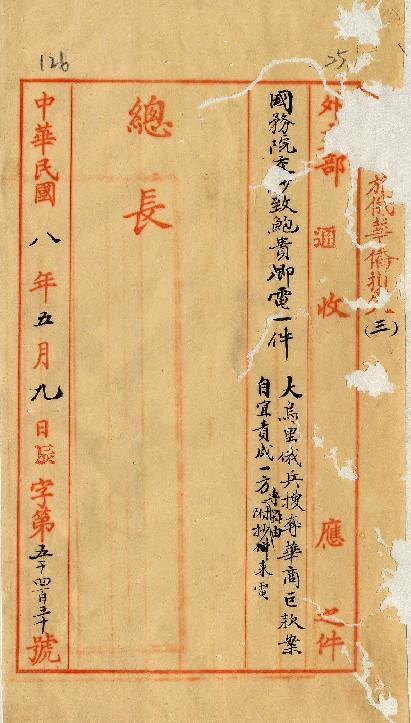 126
25
旅俄華僑損失
(三)
外交部 通 收 應 之件
國務院交抄致鮑貴卿電一件
大烏里俄兵搜奪華商巨款案
自宜責成一方
附抄件來電
總長
中華民國八年五月九日辰字第五千四百三十號